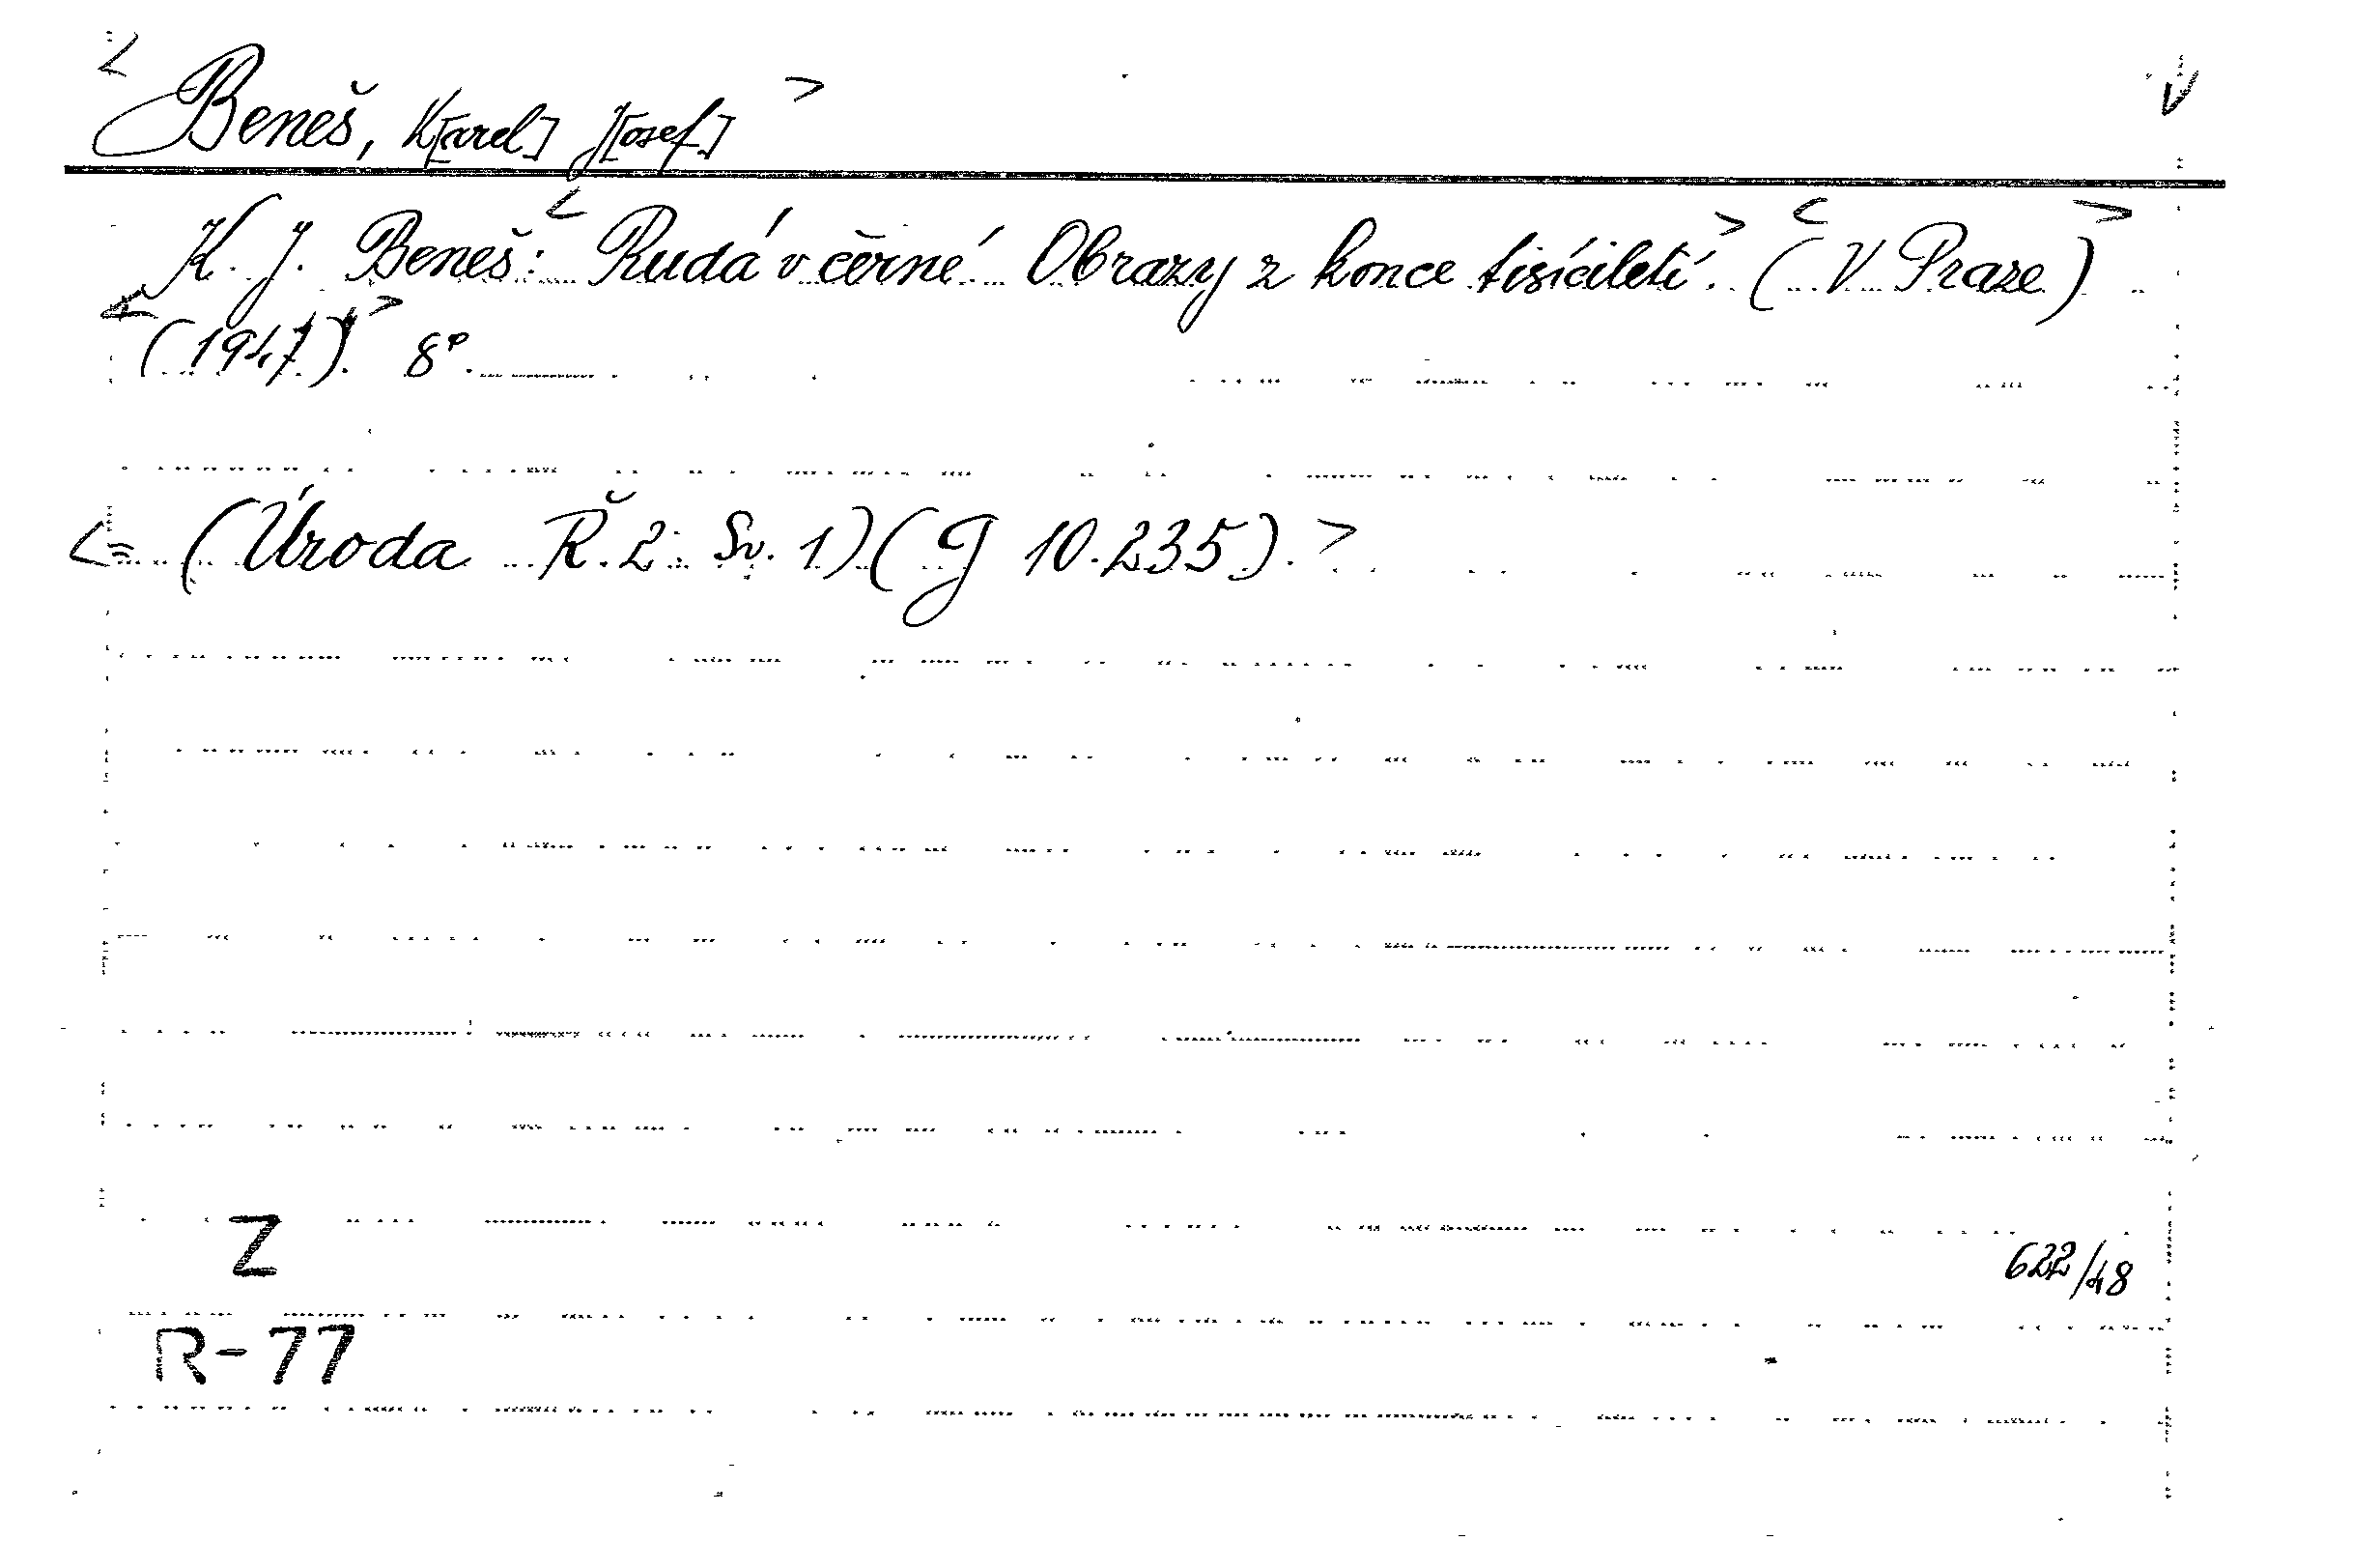 <Beneš, K[arel] J[osef]>
K. J. Beneš: <Rudá v černé. Obrazy z konce tisíciletí.> <(V Praze)>
<(1947).> 8°.
<(Úroda Ř. 2. Sv. 1)(J 10.235).>
Z
622/48
R-77